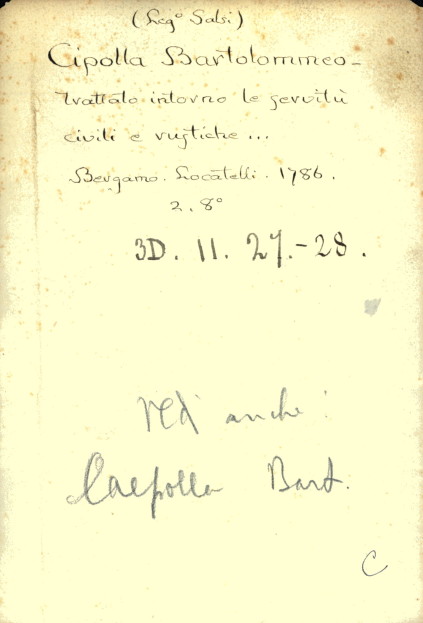 (Leg° Salsi)
Cipolla Bartolommeo -
trattato intorno le servitù
civili e rustiche ...
Bergamo. Locatelli. 1786.
2. 8°
3D. 11. 27.-28.
Ved anche:
Caepolla Bart.
C